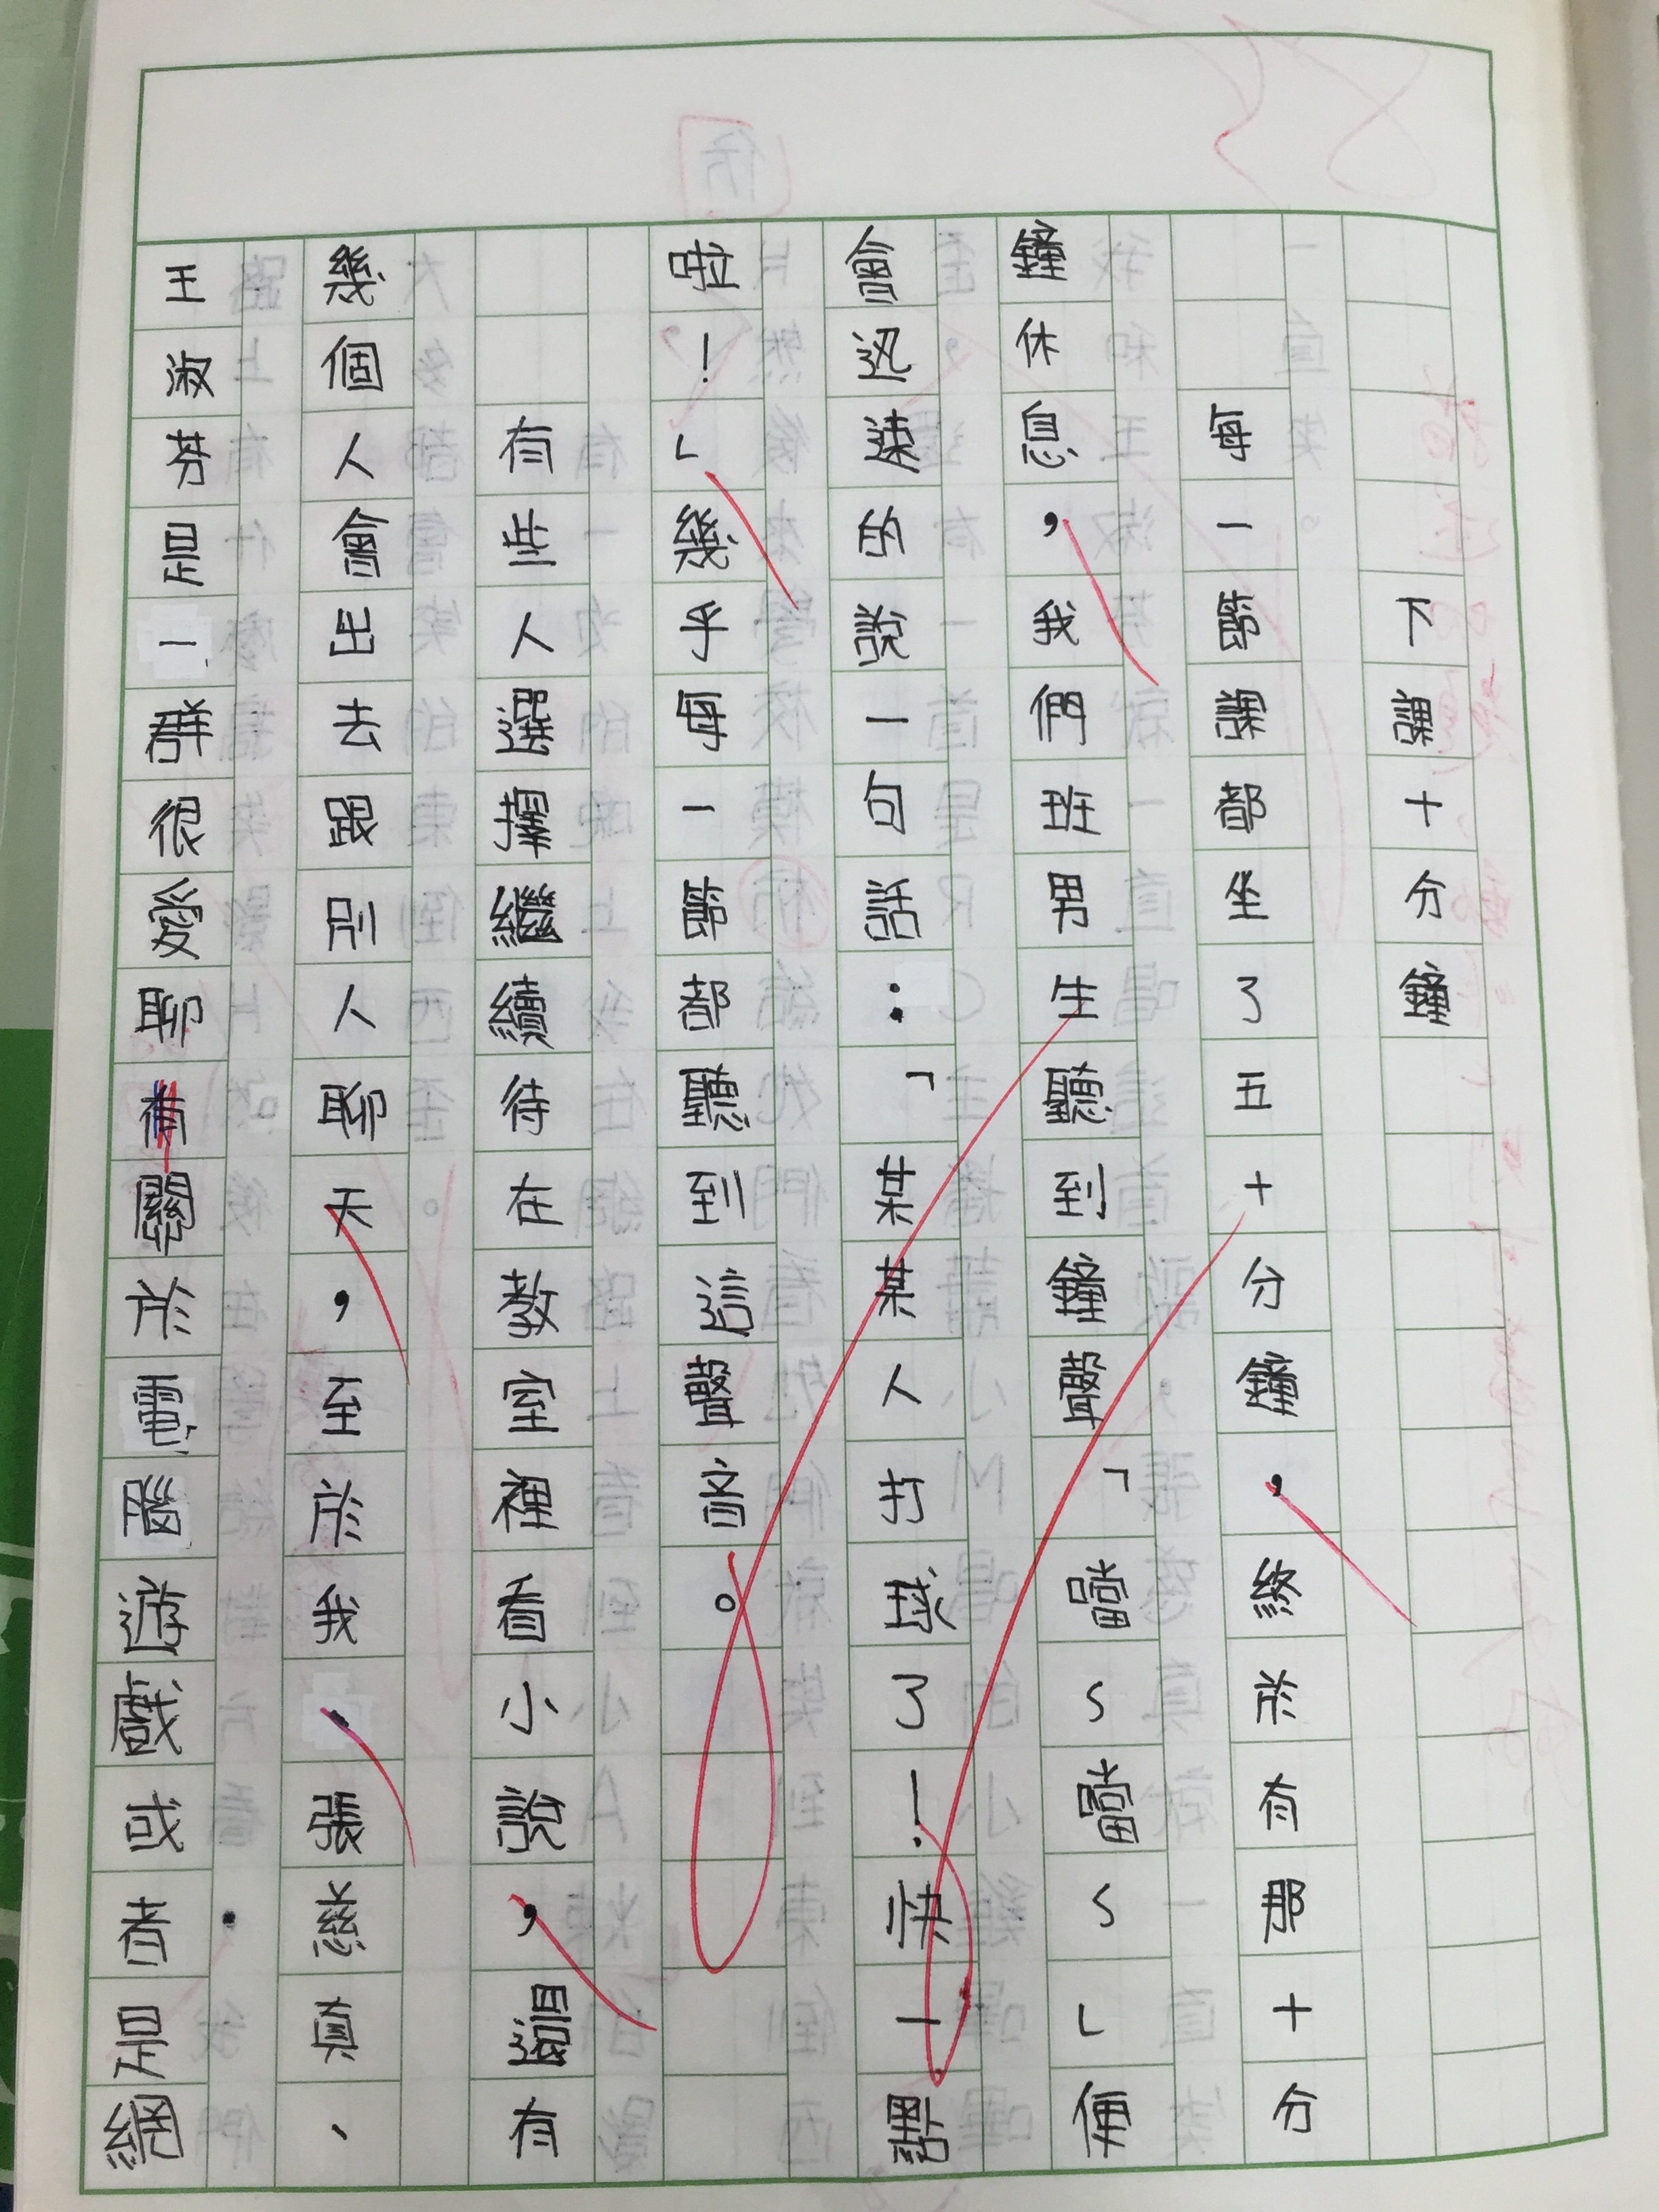 下課十分鐘
每一節課都坐了五十分鐘，終於有那十分
鐘休息，我們班男生聽到鐘聲「噹ㄑ噹ㄑ」便
會說一句話：「某某人打球了！快一點
啦！」幾乎每一節都聽到這聲音。
有些人選擇繼續待在教室裡看小說，還有
幾個人會出去跟別人聊天，至於我、張慈真、
王淑是一群很愛聊有關於電腦遊戲或者是網